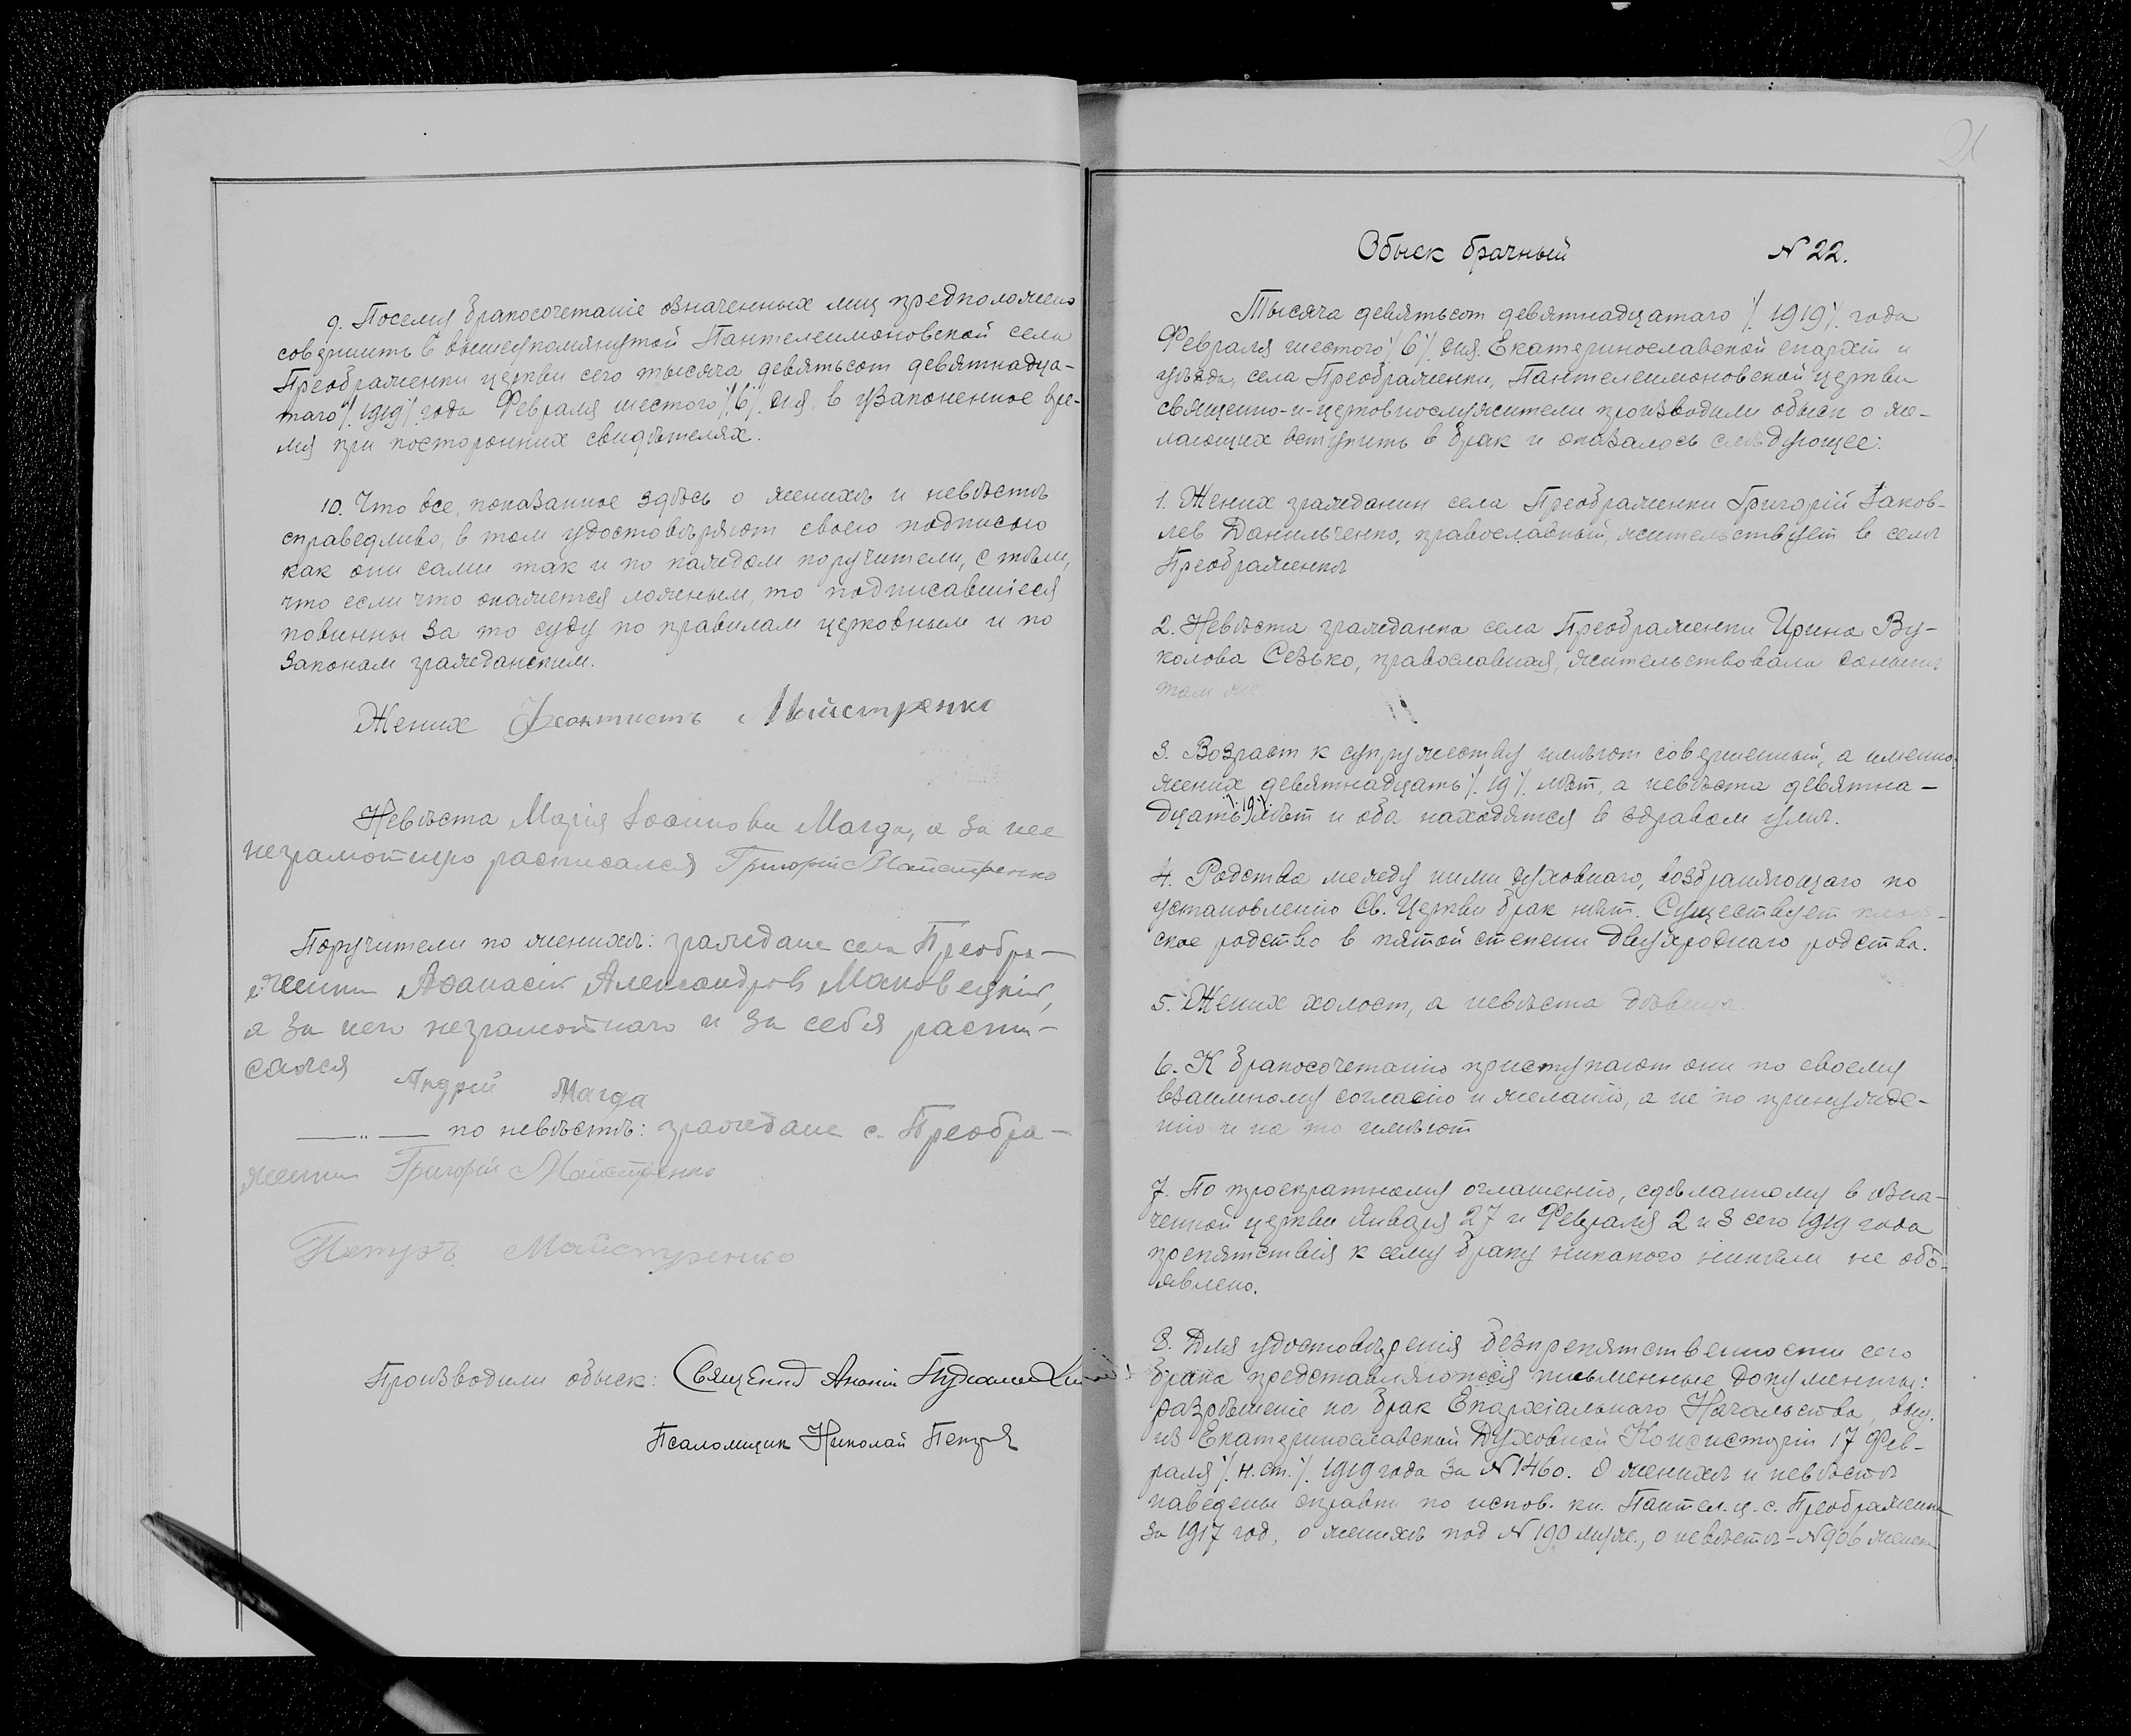 9. Посему бракосочетаніе означенных лиц предположено
совершить в вышеупомянутой Пантелеимоновской села
Преображенки церкви сего тысяча девятьсот девятнадца-
таго /1919/ года Февраля шестого /6/ дня, в узаконенное вре-
мя при посторонних свидѣтелях.
10. Что все, показанное здѣсь о женихѣ и невѣстѣ
справедливо, в том удостовѣряют своею подписью
как они сами так и по каждом поручители, с тѣм,
что если что окажется ложным, то подписавшіеся
повинны за то суду по правилам церковным и по
законам гражданским.
Жених Феоктистъ Майстренко
Невѣста Марія Іоаннова Магда, а за нее
неграмотную расписался Григорій Майстренко
Поручители по женихѣ: граждане села Преобра-
женки Афанасій Александров Маковецкій,
а за него неграмотнаго и за себя распи-
сался Андрей Магда
—„— по невѣстѣ: граждане с. Преобра-
женки Григорій Майстренко
Петръ Майстренко
Производили обыск: Священник Ананій
Псаломщик Николай
21
Обыск брачный N 22.
Тысяча девятьсот девятнадцатаго /1919/ года
Февраля шестого /6/ дня. Екатеринославской епархіи и
уѣзда, села Преображенки, Пантелеимоновской церкви
священно-и-церковнослужители производили обыск о же-
лающих вступить в брак и оказалось слѣдующее:
1. Жених гражданин села Преображенки Григорій Іаков-
лев Данильченко, православный, жительствует в селѣ
Преображенкѣ
2. Невѣста гражданка села Преображенки Ирина Ву-
колова Сезько, православная, жительствовала донынѣ
там же.
3. Возраст к супружеству имѣют совершенный, а именно:
жених девятнадцать /19/ лѣт, а невѣста девятна-
дцать /19/ лѣт и оба находятся в здравом умѣ.
4. Родства между ними духовнаго, возбраняющаго по
установленію Св. Церкви брак нѣт. Существует плот-
ское родство в пятой степени двухроднаго родства.
5. Жених холост, а невѣста дѣвица.
6. К бракосочетанію приступают они по своему
взаимному согласію и желанію, а не по принужде-
нію и на то имѣют
7. По троекратному оглашенію, сдѣланному в озна-
ченной церкви Января 27 и Февраля 2 и 3 сего 1919 года
препятствія к сему браку никакого никѣм не объ-
явлено.
8. Для удостовѣренія безпрепятственности сего
брака представляются письменные документы:
разрѣшеніе на брак Епархіальнаго Начальства, выд.
из Екатеринославской Духовной Консисторіи 17 Фев-
раля /н. ст./ 1919 года за N 1460. О женихѣ и невѣстѣ
наведены справки по испов. кн. Пантел. ц. с. Преображенки
за 1917 год, о женихѣ под N 190 муж., о невѣстѣ - N 906 женск.